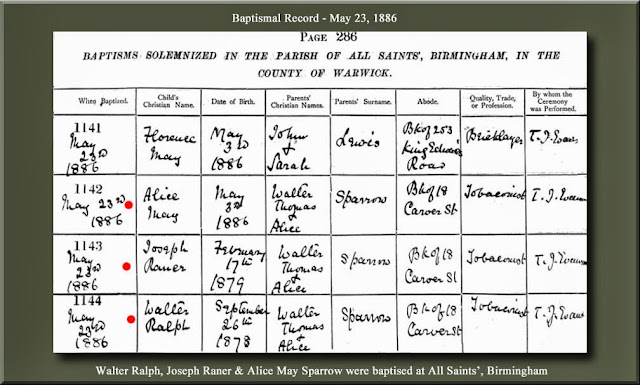 Baptismal Record - May 23, 1886
PAGE 286
BAPTISMS SOLEMNIZED IN THE PARISH OF ALL SAINTS', BIRMINGHAM, IN THE
COUNTY OF WARWICK.
When Baptized. Child's Christian Name. Date of Birth. Parents' Christian Names. Parents' Surname. Abode. Quality, Trade, or Profession. By whom the Ceremony was Performed.
1141
May 23rd 1886 Florence May May 3rd 1886 John & Sarah Lewis Bk of 253 King Edwds Road Bricklayer T. J. Evans
1142
May 23rd 1886 Alice May May 3rd 1886 Walter Thomas & Alice Sparrow Bk of 18 Carver St. Tobaconist T. J. Evans
1143
May 23rd 1886 Joseph Raner February 17th 1879 Walter Thomas & Alice Sparrow Bk of 18 Carver St Tobaconist T. J. Evans
1144
May 23rd 1886 Walter Ralph September 26th 1878 Walter Thomas & Alice Sparrow Bk of 18 Carver St. Tobaconist T. J. Evans
Walter Ralph, Joseph Raner & Alice May Sparrow were baptised at All Saints', Birmingham